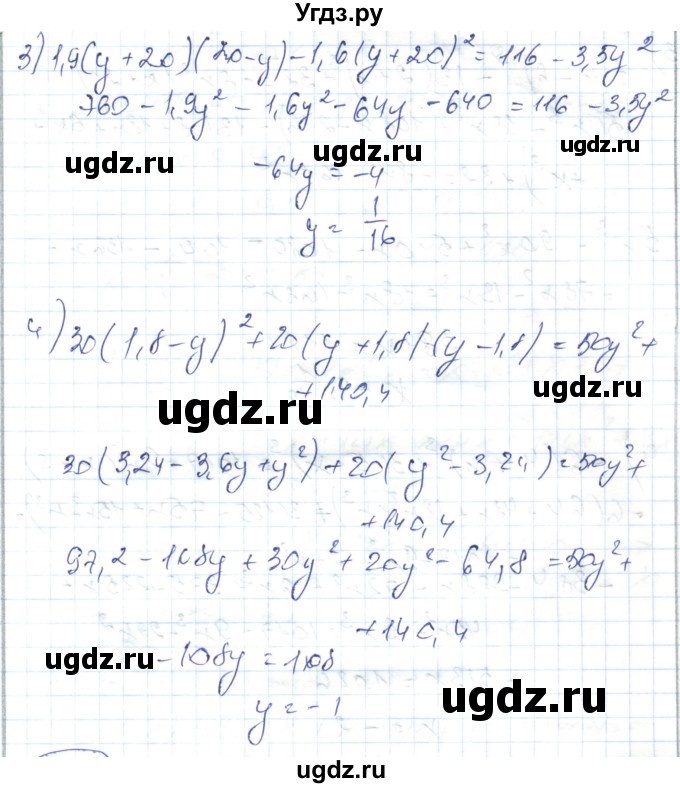 Угдз.ру
3) 1,9(y+20)(20-y)-1,6(y+20)²=116-3,5y²
760-1,9y²-1,6y²-64y-640=116-3,5y²
ugdz.ru ugdz.ru ugdz.ru
-64y=-4
y=1/16
4) 30(1,8-y)²+20(y+1,8)(y-1,8)=50y²+
+140,4
ugdz.ru ugdz.ru
30(3,24-3,6y+y²)+20(y²-3,24)=50y²+
+140,4
97,2-108y+30y²+20y²-64,8=50y²+
+140,4
ugdz.ru -108y=108
y=-1
ugdz.ru
ugdz.ru